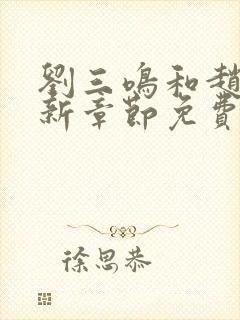 劉三鳴和趙
新章節免費
徐思恭